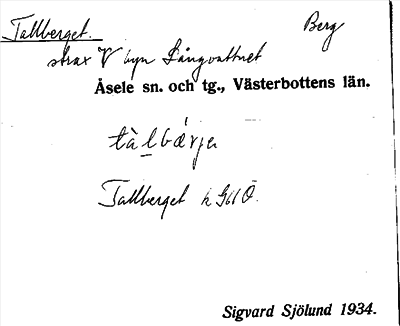 Tallberget. Berg
strax V byn Långvattnet
Åsele sn. och tg., Västerbottens län.
tàlbǽrje
Tallberget k G11Ö.
Sigvard Sjölund 1934.